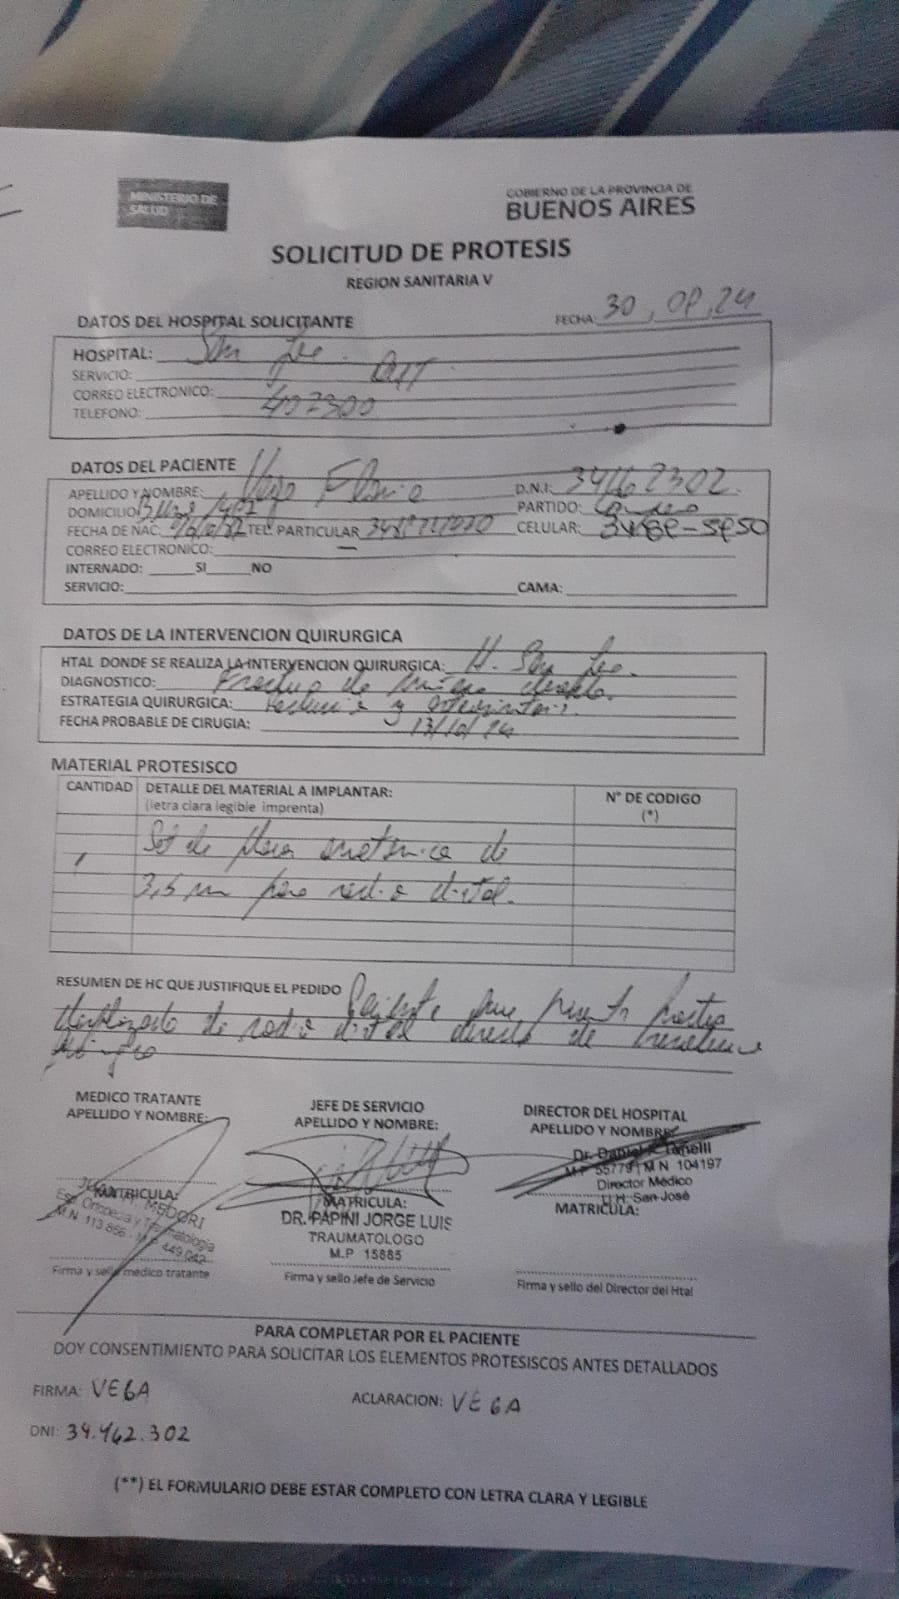 MINISTERIO DE
SALUD
GOBIERNO DE LA PROVINCIA DE
BUENOS AIRES
SOLICITUD DE PROTESIS
REGION SANITARIA V
FECHA: 30, 08, 24
DATOS DEL HOSPITAL SOLICITANTE
HOSPITAL: San José
SERVICIO:
CORREO ELECTRONICO:
TELEFONO: 407300
DATOS DEL PACIENTE
APELLIDO Y NOMBRE: Vega D.N.I: 34462302
DOMICILIO: PARTIDO:
FECHA DE NAC. TEL. PARTICULAR CELULAR:
CORREO ELECTRONICO: —
INTERNADO: ____SI ____NO
SERVICIO: CAMA:
DATOS DE LA INTERVENCION QUIRURGICA
HTAL DONDE SE REALIZA LA INTERVENCION QUIRURGICA: H. San José
DIAGNOSTICO: Fractura de muñeca derecha.
ESTRATEGIA QUIRURGICA: Reducción y osteosíntesis.
FECHA PROBABLE DE CIRUGIA: 13/10/24
MATERIAL PROTESISCO
CANTIDAD DETALLE DEL MATERIAL A IMPLANTAR: N° DE CODIGO
(letra clara legible imprenta) (*)
1 Set de placa anatómica de
3,5 mm para radio distal.
RESUMEN DE HC QUE JUSTIFIQUE EL PEDIDO Paciente que presenta fractura
desplazada de radio distal derecho de
MEDICO TRATANTE JEFE DE SERVICIO DIRECTOR DEL HOSPITAL
APELLIDO Y NOMBRE: APELLIDO Y NOMBRE: APELLIDO Y NOMBRE:
MATRICULA:
MEDORI
Esp. Ortopedia y Traumatología
M.N 113.866 - M.P 449.042
Firma y sello medico tratante
MATRICULA:
DR. PAPINI JORGE LUIS
TRAUMATOLOGO
M.P 15885
Firma y sello Jefe de Servicio
M.P 55779 M N 104197
Director Médico
H. San José
MATRICULA:
Firma y sello del Director del Htal
PARA COMPLETAR POR EL PACIENTE
DOY CONSENTIMIENTO PARA SOLICITAR LOS ELEMENTOS PROTESISCOS ANTES DETALLADOS
FIRMA: VEGA ACLARACION: VEGA
DNI: 34.462.302
(**) EL FORMULARIO DEBE ESTAR COMPLETO CON LETRA CLARA Y LEGIBLE